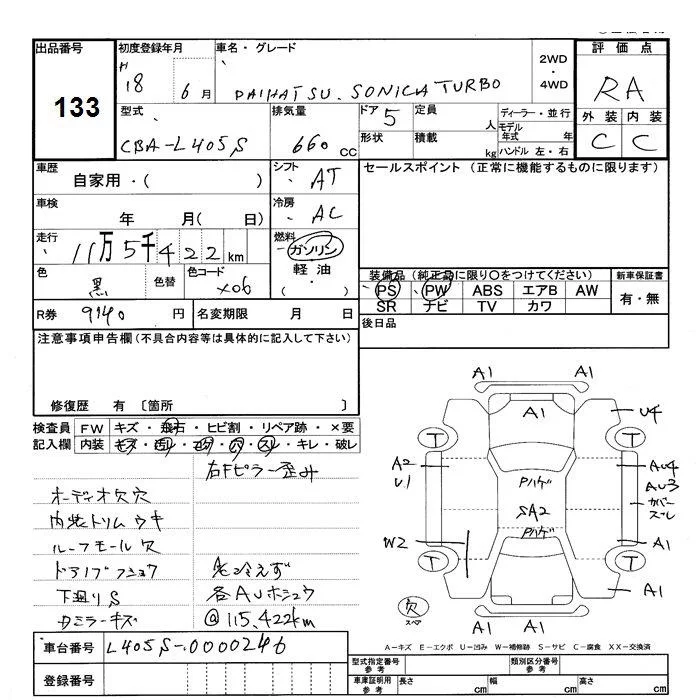 出品番号
133
初度登録年月
H 18 6月
車名・グレード
DAIHATSU. SONICA TURBO
2WD
・
4WD
評価点
RA
外装 内装
C C
型式
CBA-L405S
排気量
660 cc
ドア 5
形状
定員 人
積載 kg
ディーラー・並行
モデル年式 年
ハンドル 左・右
車歴
自家用・( )
シフト
AT
車検
年 月( 日)
冷房
AC
走行
11万5千422km
燃料
ガソリン
軽油
( ・ )
色
黒
色替
色コード
X06
R券 9140 円
名変期限 月 日
セールスポイント (正常に機能するものに限ります)
装備品 (純正品に限り○をつけてください)
PS PW ABS エアB AW
SR ナビ TV カワ
新車保証書
有・無
後日品
注意事項申告欄 (不具合内容等は具体的に記入して下さい)
修復歴 有 〔箇所 〕
検査員 FW キズ・飛石・ヒビ割・リペア跡・×要
記入欄 内装 キズ・凹・コゲ・穴・スレ・キレ・破レ
右Fピラー歪み
オーディオ欠穴
内装トリムウキ
ルーフモール欠
下廻りS
@115,422km
車台番号 L405S-0000246
登録番号
A1 A1
A1
U4
T T
A2
U1
AU4
AU3
カバー
スレ
Pハゲ
SA2
Pハゲ
W2
A1
T T
A1
欠
スペア
A1 A1
A-キズ E-エクボ U-凹み W-補修跡 S-サビ C-腐食 XX-交換済
型式指定番号
参考
類別区分番号
参考
車庫証明用
参考
長さ cm 幅 cm 高さ cm